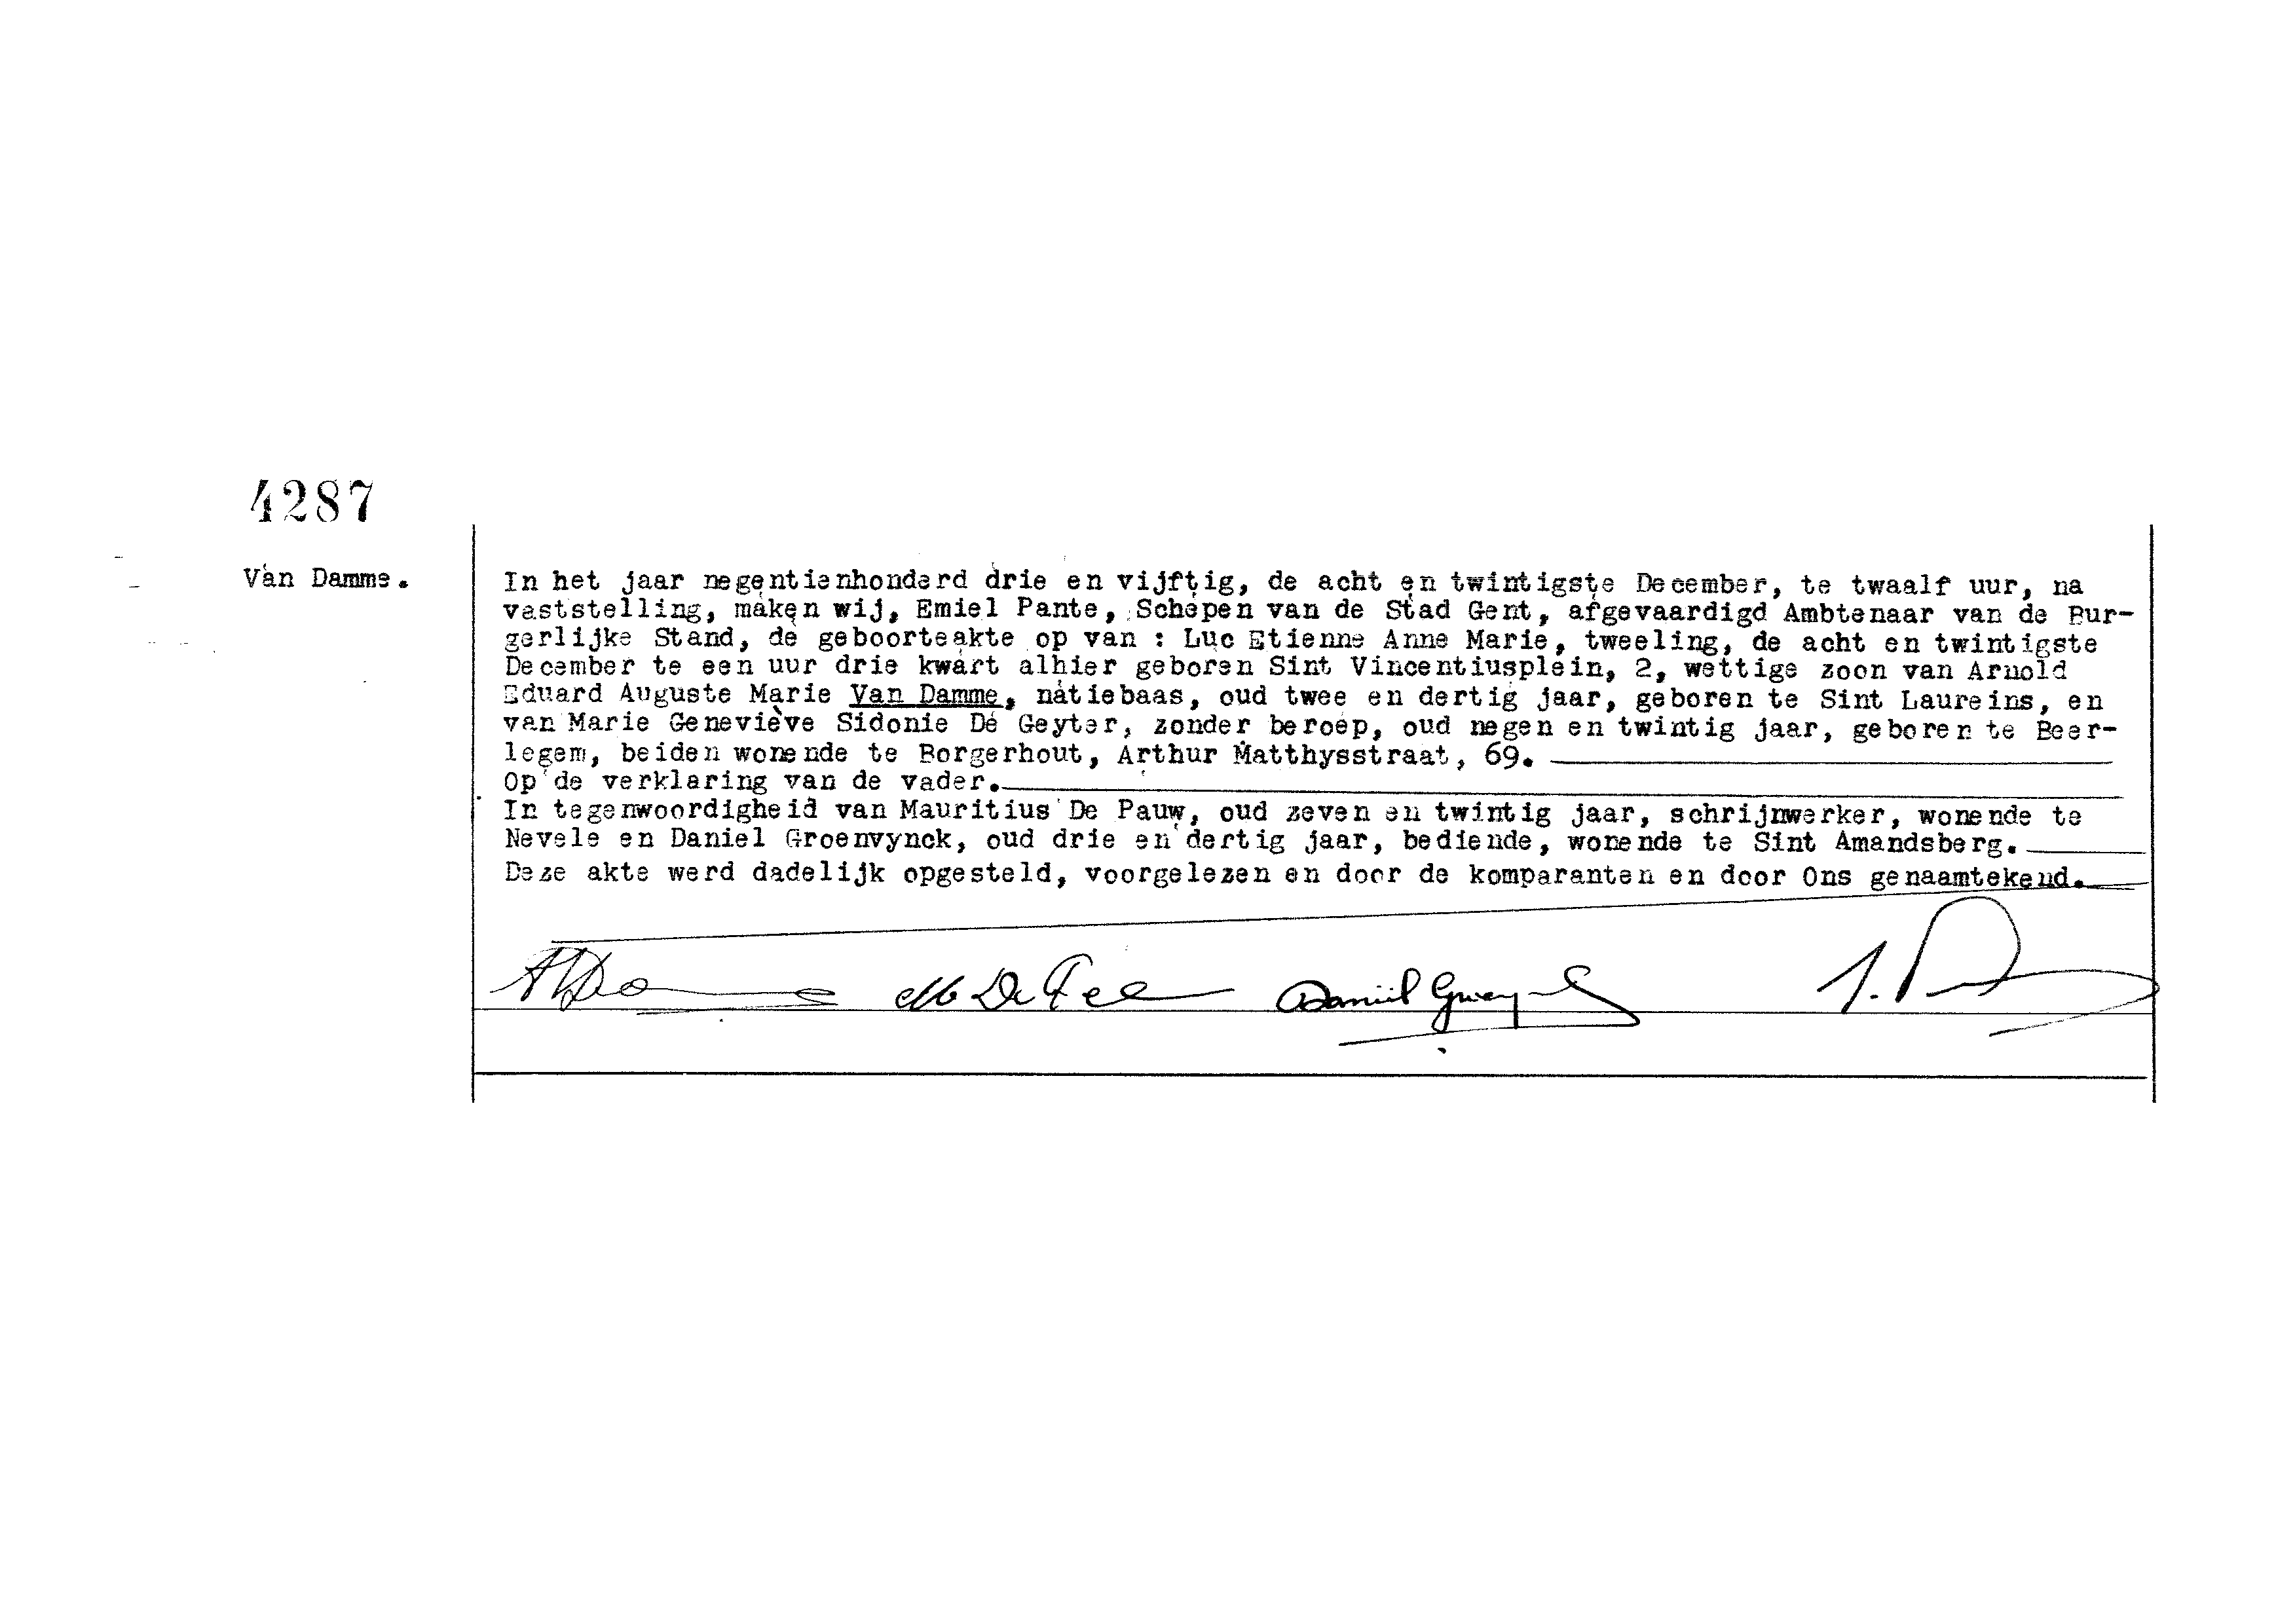 4287
Van Damme.
In het jaar negentienhonderd drie en vijftig, de acht en twintigste December, te twaalf uur, na
vaststelling, maken wij, Emiel Pante, Schepen van de Stad Gent, afgevaardigd Ambtenaar van de Bur-
gerlijke Stand, de geboorteakte op van : Luc Etienne Anne Marie, tweeling, de acht en twintigste
December te een uur drie kwart alhier geboren Sint Vincentiusplein, 2, wettige zoon van Arnold
Eduard Auguste Marie Van Damme, natiebaas, oud twee en dertig jaar, geboren te Sint Laureins, en
van Marie Geneviève Sidonie De Geyter, zonder beroep, oud negen en twintig jaar, geboren te Beer-
legem, beiden wonende te Borgerhout, Arthur Matthysstraat, 69.
Op de verklaring van de vader.
In tegenwoordigheid van Mauritius De Pauw, oud zeven en twintig jaar, schrijnwerker, wonende te
Nevele en Daniel Groenvynck, oud drie en dertig jaar, bediende, wonende te Sint Amandsberg.
Deze akte werd dadelijk opgesteld, voorgelezen en door de komparanten en door Ons genaamtekend.
Daniël